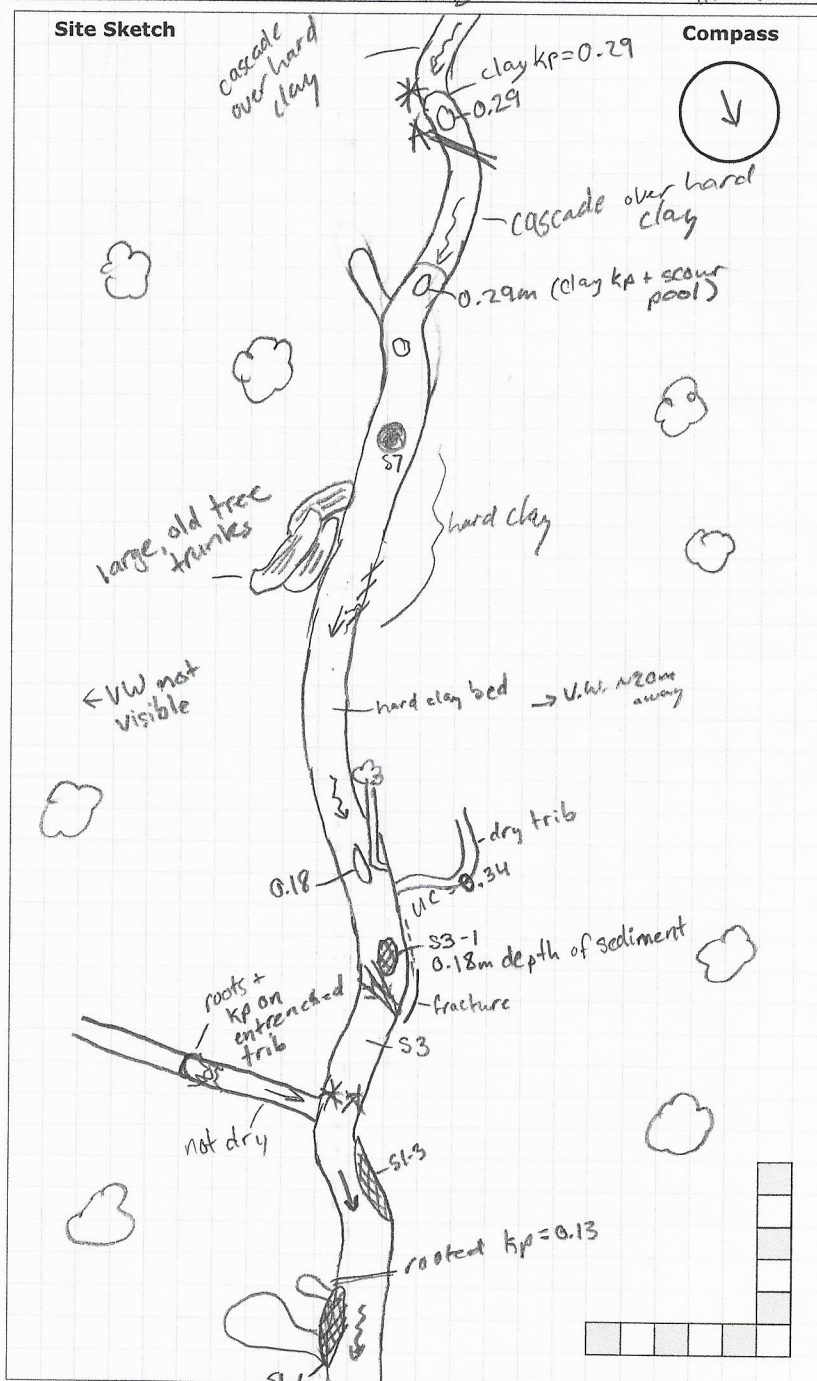 Site Sketch
Compass
cascade
over hard
clay
clay kp=0.29
0.29
cascade over hard
clay
0.29m (clay kp + scour
pool)
S7
large, old tree
trunks
hard clay
← VW not
visible
hard clay bed
→ V.W. ~20m
away
dry trib
0.18
0.34
UC
S3-1
0.18m depth of sediment
fracture
roots +
kp on
entrenched
trib
S3
not dry
S1-3
rooted kp=0.13